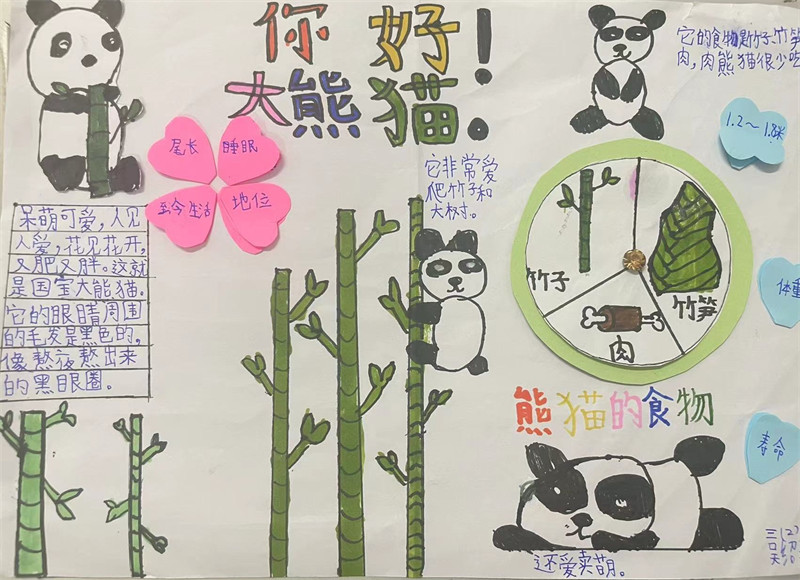 你好!
大熊猫!
它的食物是竹子、竹笋
肉,肉熊猫很少吃
1.2～1.8米
尾长
睡眠
至今生活
地位
它非常爱
爬竹子和
大树。
呆萌可爱,人见
人爱,花见花开,
又肥又胖。这就
是国宝大熊猫。
它的眼睛周围
的毛发是黑色的,
像熬夜熬出来
的黑眼圈。
竹子
竹笋
肉
体重
熊猫的食物
寿命
还爱卖萌。